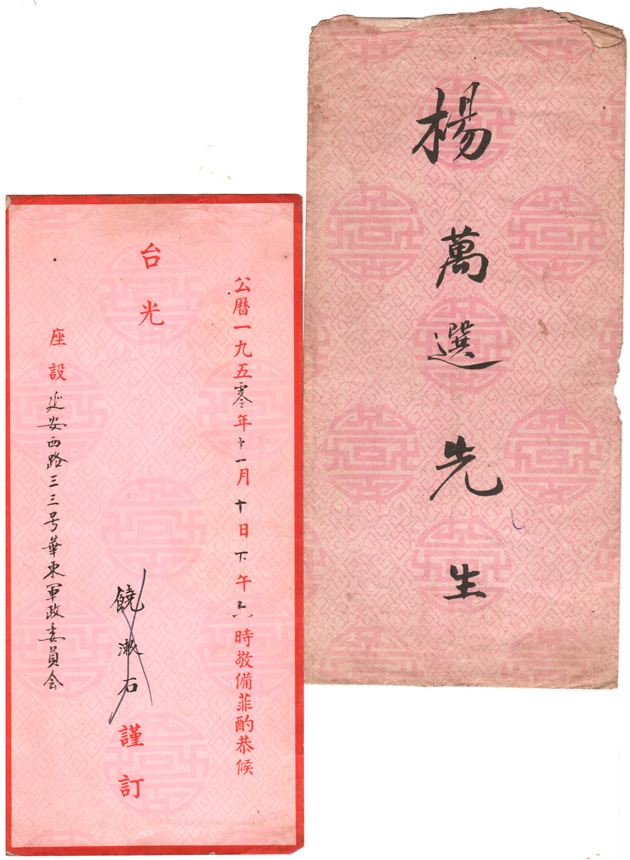 楊萬選先生
公曆一九五零年十一月十日下午六時敬備菲酌恭候
台光
饒漱石謹訂
座設延安西路三三号華東軍政委員会